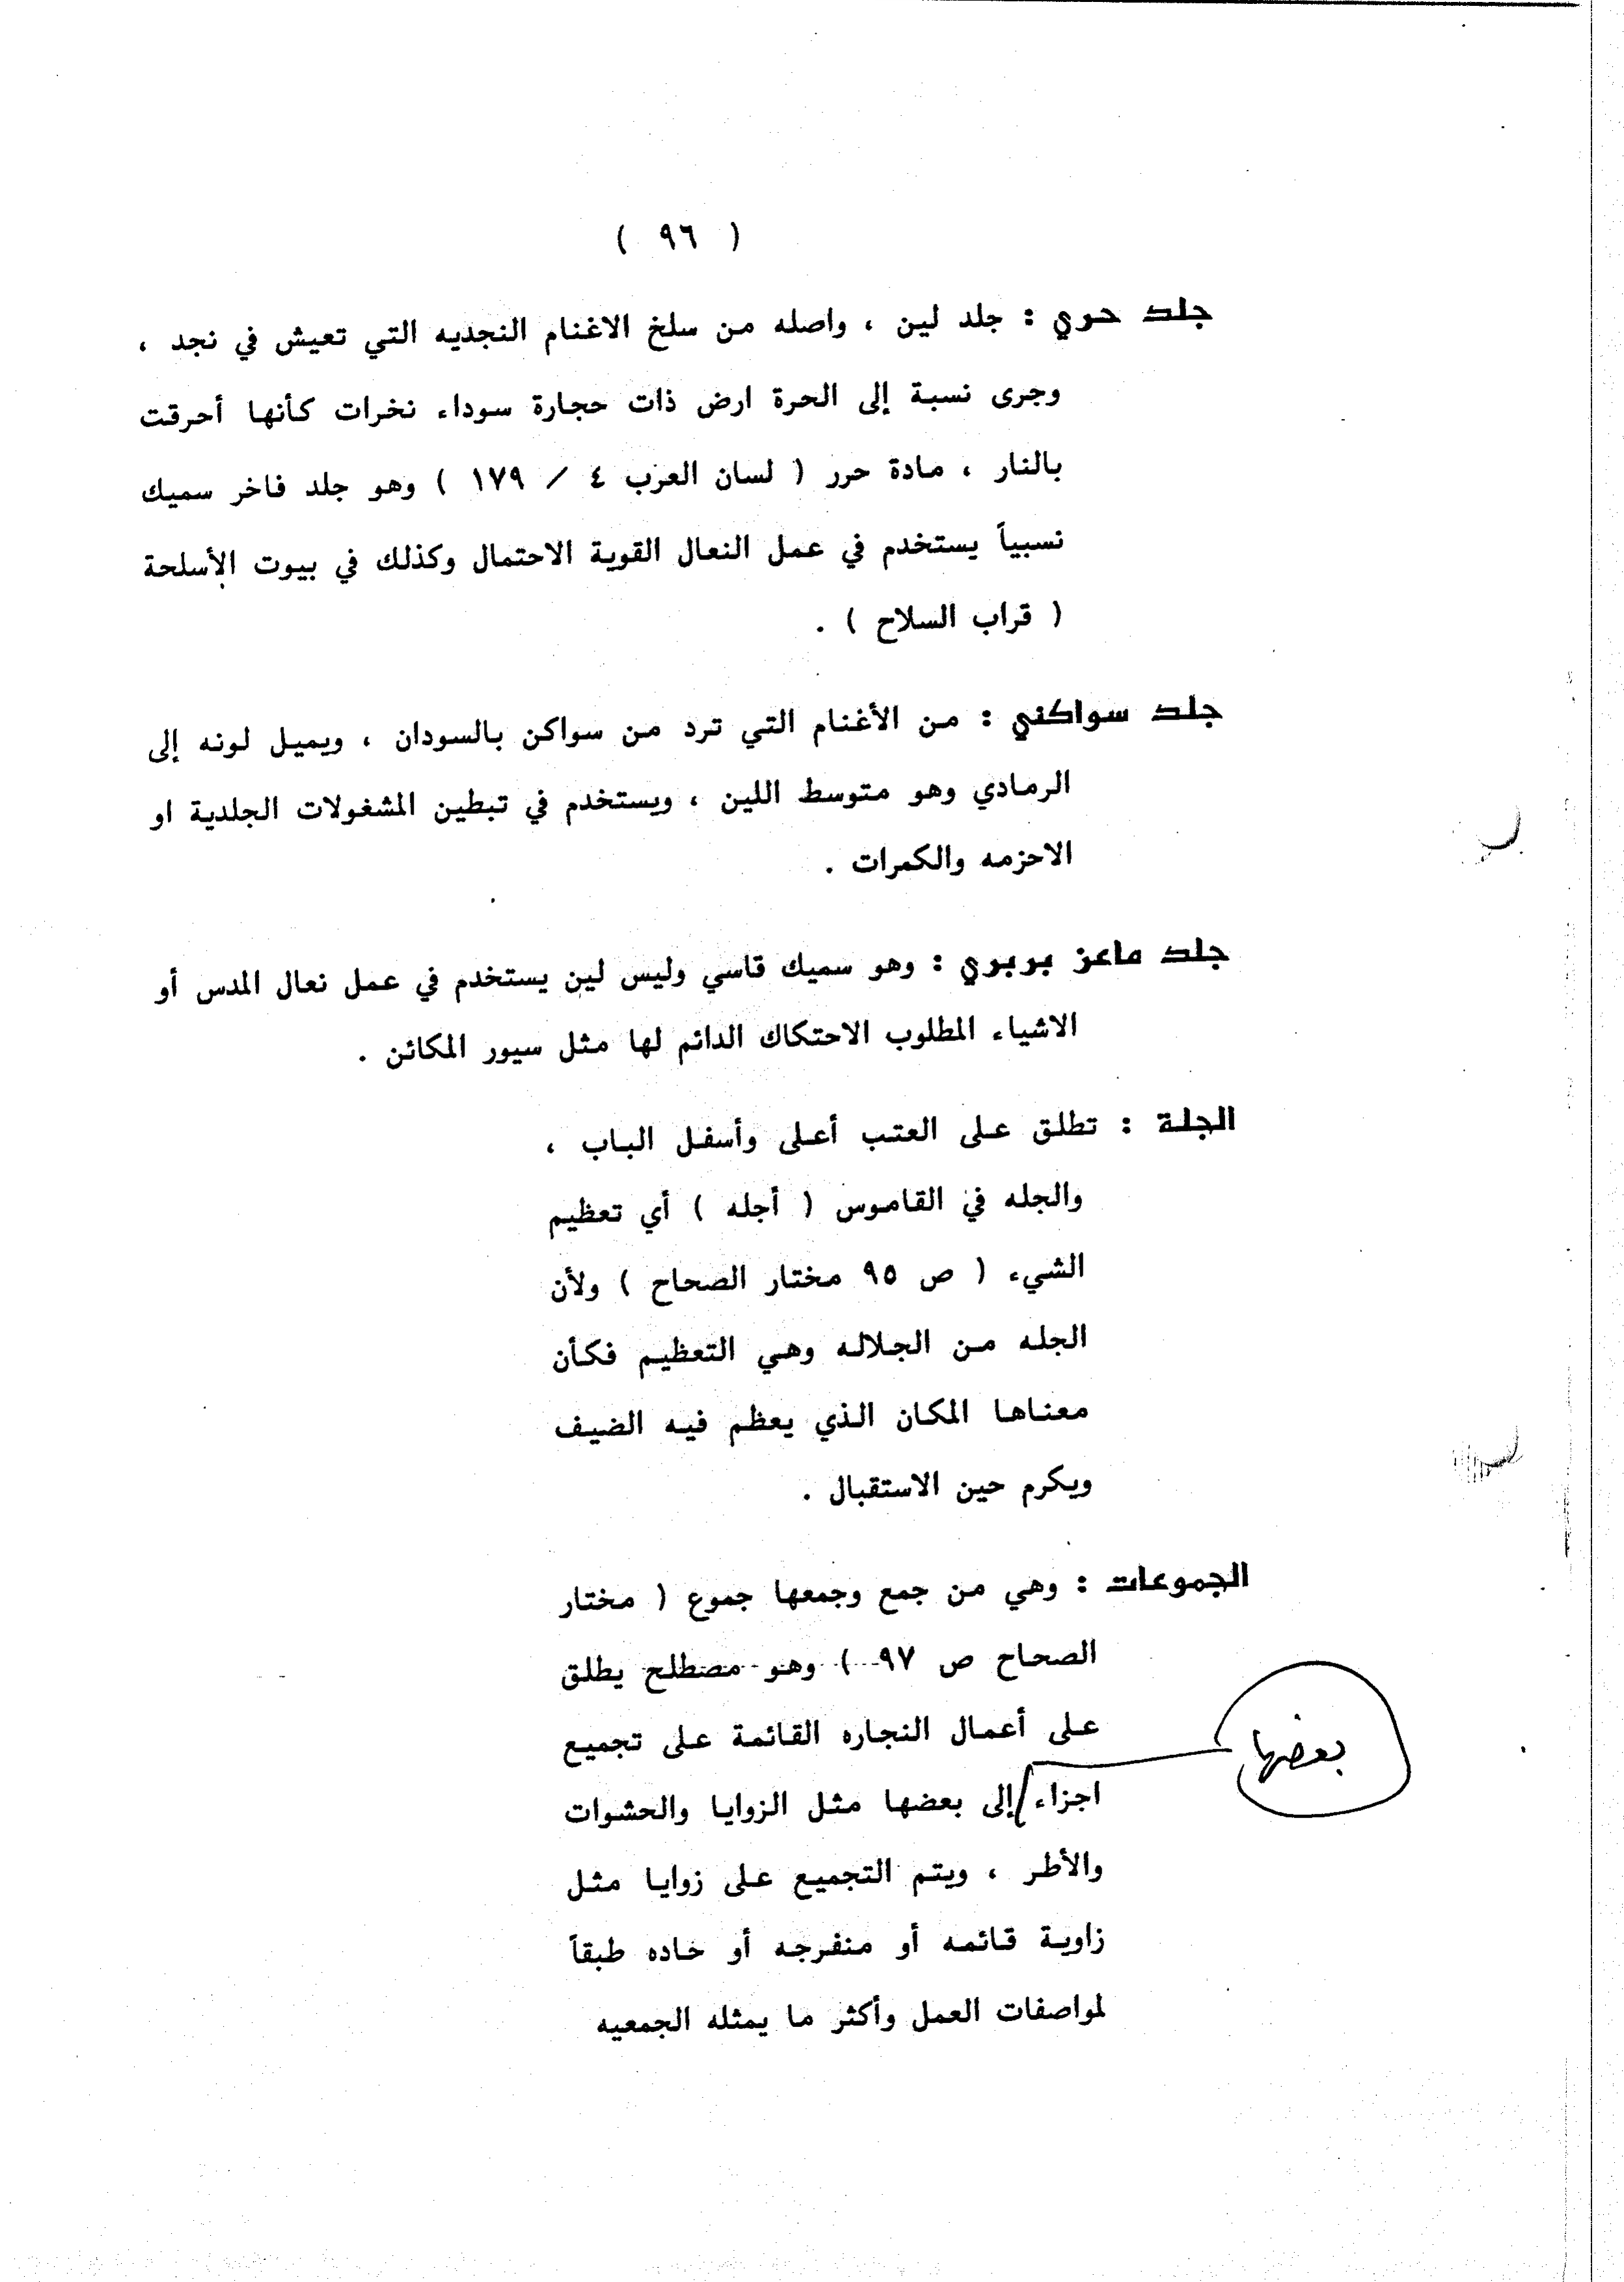 ( ٩٦ )
جلد حري : جلد لين ، واصله من سلخ الاغنام النجديه التي تعيش في نجد ،
وجرى نسبة إلى الحرة ارض ذات حجارة سوداء نخرات كأنها أحرقت
بالنار ، مادة حرر ( لسان العرب ٤ / ١٧٩ ) وهو جلد فاخر سميك
نسبياً يستخدم في عمل النعال القوية الاحتمال وكذلك في بيوت الأسلحة
( قراب السلاح ) .
جلد سواكني : من الأغنام التي ترد من سواكن بالسودان ، ويميل لونه إلى
الرمادي وهو متوسط اللين ، ويستخدم في تبطين المشغولات الجلدية او
الاحزمه والكمرات .
جلد ماعز بربري : وهو سميك قاسي وليس لين يستخدم في عمل نعال المدس أو
الاشياء المطلوب الاحتكاك الدائم لها مثل سيور المكائن .
الجلة : تطلق على العتب أعلى وأسفل الباب ،
والجله في القاموس ( أجله ) أي تعظيم
الشيء ( ص ٩٥ مختار الصحاح ) ولأن
الجله من الجلاله وهي التعظيم فكأن
معناها المكان الذي يعظم فيه الضيف
ويكرم حين الاستقبال .
الجموعات : وهي من جمع وجمعها جموع ( مختار
الصحاح ص ٩٧ ) وهو مصطلح يطلق
على أعمال النجاره القائمة على تجميع
اجزاء إلى بعضها مثل الزوايا والحشوات
بعضها
والأطر ، ويتم التجميع على زوايا مثل
زاوية قائمه أو منفرجه أو حاده طبقاً
لمواصفات العمل وأكثر ما يمثله الجمعيه